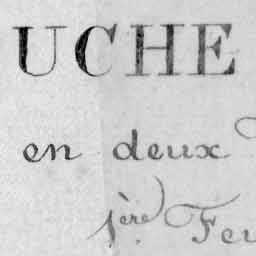 UCHE
en deux
1ère Feu